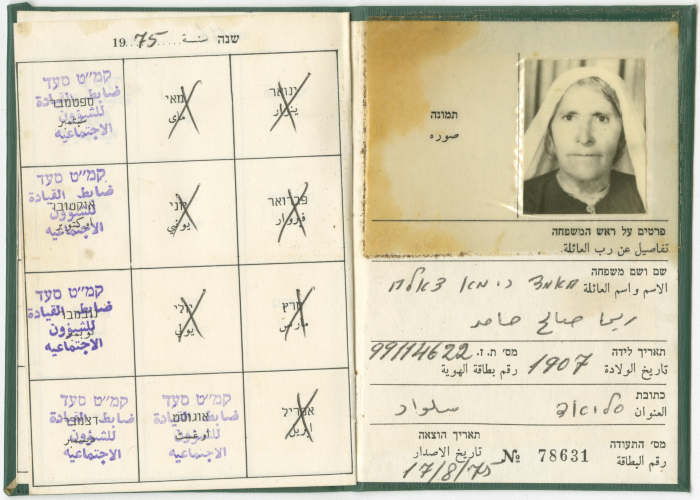 תמונה
صوره
פרטים על ראש המשפחה
تفاصيل عن رب العائلة
שם ושם משפחה
الاسم واسم العائلة
חאמד רימא צאלח
ريما صالح حامد
תאריך לידה 1907 מס' ת. ז. 99114622
تاريخ الولادة رقم بطاقة الهوية
כתובת
العنوان
סליואד سلواد
מס' התעודה № 78631 תאריך הוצאה
رقم البطاقة تاريخ الاصدار
17/8/75
שנה سنة 1975
ינואר
يناير
מאי
مאי
קמ"ט סעד
ضابط القيادة
ספטמבר
للشؤون
سبتمبر
الاجتماعيه
פברואר
يוני
يونيو
קמ"ט סעד
ضابط القيادة
אוקטובר
للشؤون
اكتوبر
الاجتماعيه
מרץ
مارس
יולי
يوليو
קמ"ט סעד
ضابط القيادة
נובמבר
للشؤون
نوفمبر
الاجتماعيه
אפריל
ابريل
קמ"ט סעד
ضابط القيادة
אוגוסט
للشؤون
اوغست
الاجتماعيه
קמ"ט סעד
ضابط القيادة
דצמבר
للشؤون
ديسمبر
الاجتماعيه